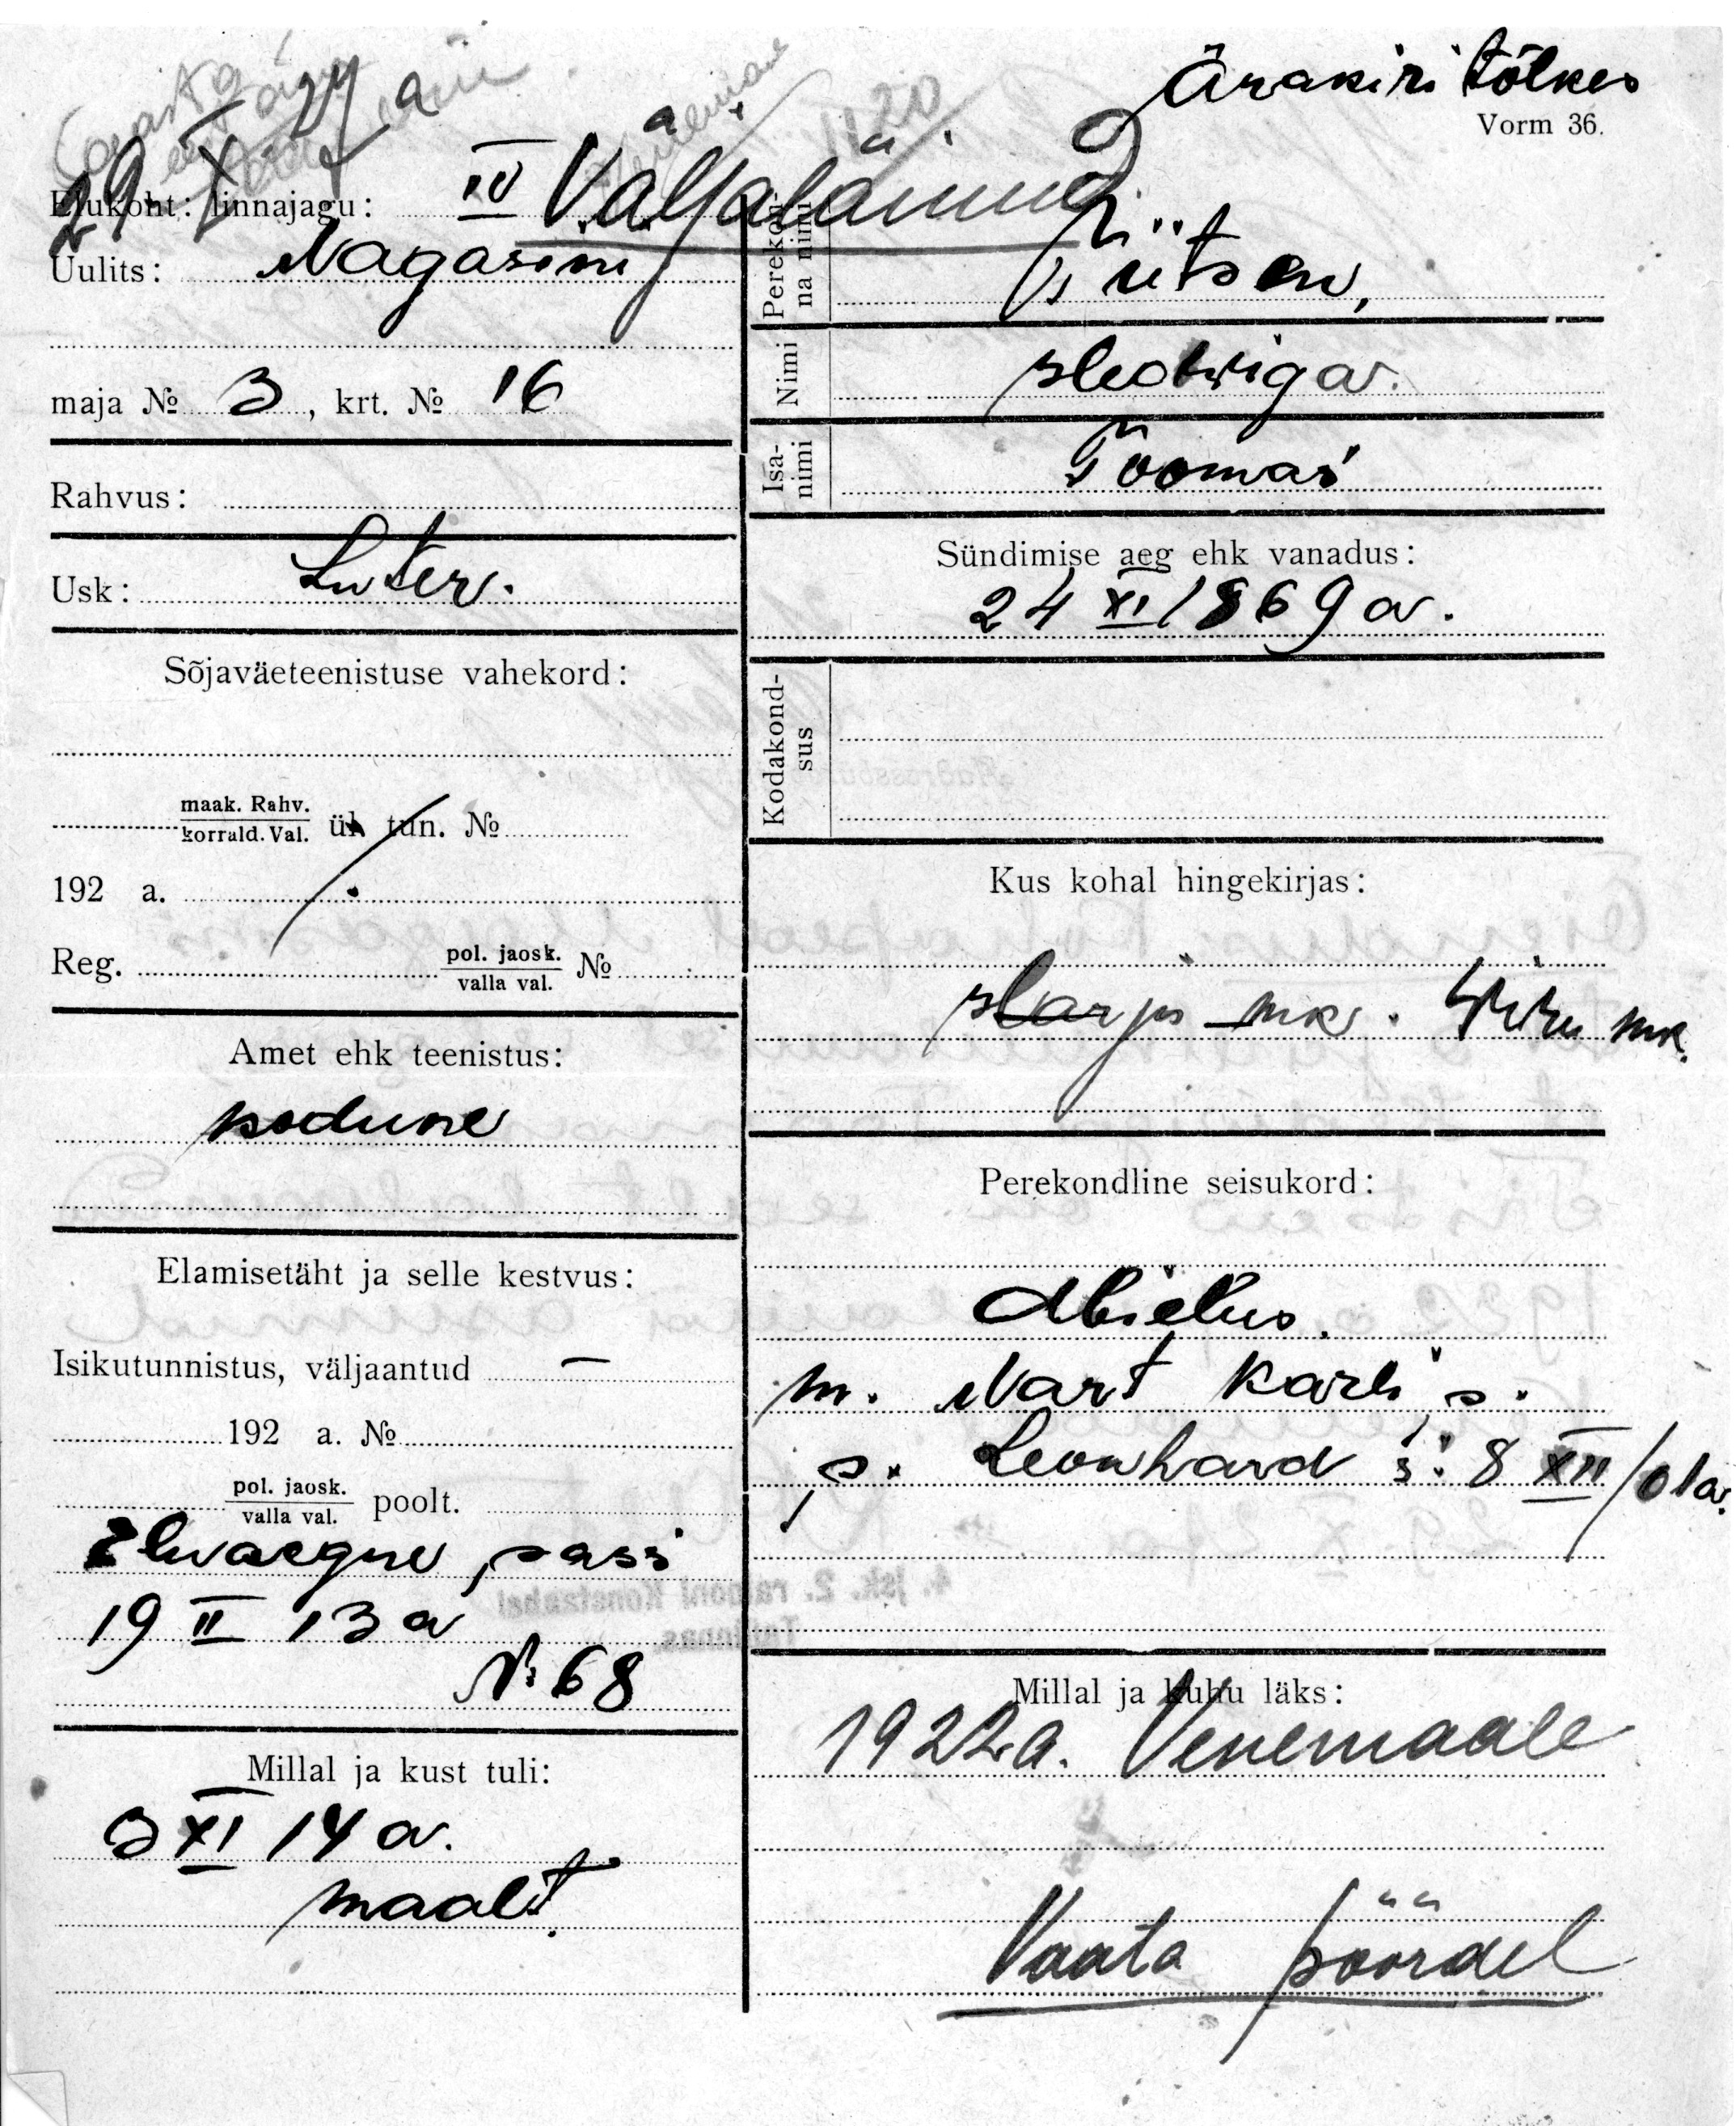 Ärakiri tõlkes
Vorm 36.
29 X 24 a
Väljaläinud
Elukoht: linnajagu: IV
Uulits: Magasini
maja № 3, krt. № 16
Rahvus:
Usk: Luter.
Sõjaväeteenistuse vahekord:
maak. Rahv.
korrald. Val. ük tun. №
192 a.
Reg. pol. jaosk.
valla val. №
Amet ehk teenistus:
kodune
Elamisetäht ja selle kestvus:
Isikutunnistus, väljaantud —
192 a. №
pol. jaosk.
valla val. poolt.
Eluaegne pass
19 II 13 a
№ 68
Millal ja kust tuli:
3 XI 14 a.
maalt.
Perekon-
na nimi
Nimi Hedwiga.
Isa-
nimi Toomas
Sündimise aeg ehk vanadus:
24 XI 1869 a.
Kodakond-
sus
Kus kohal hingekirjas:
Harju mk. Viru mk.
Perekondline seisukord:
Abielus.
m. Mart Karli p.
p. Leonhard s: 8 XII/01a.
Millal ja kuhu läks:
1922 a. Venemaale
Vaata pöördel